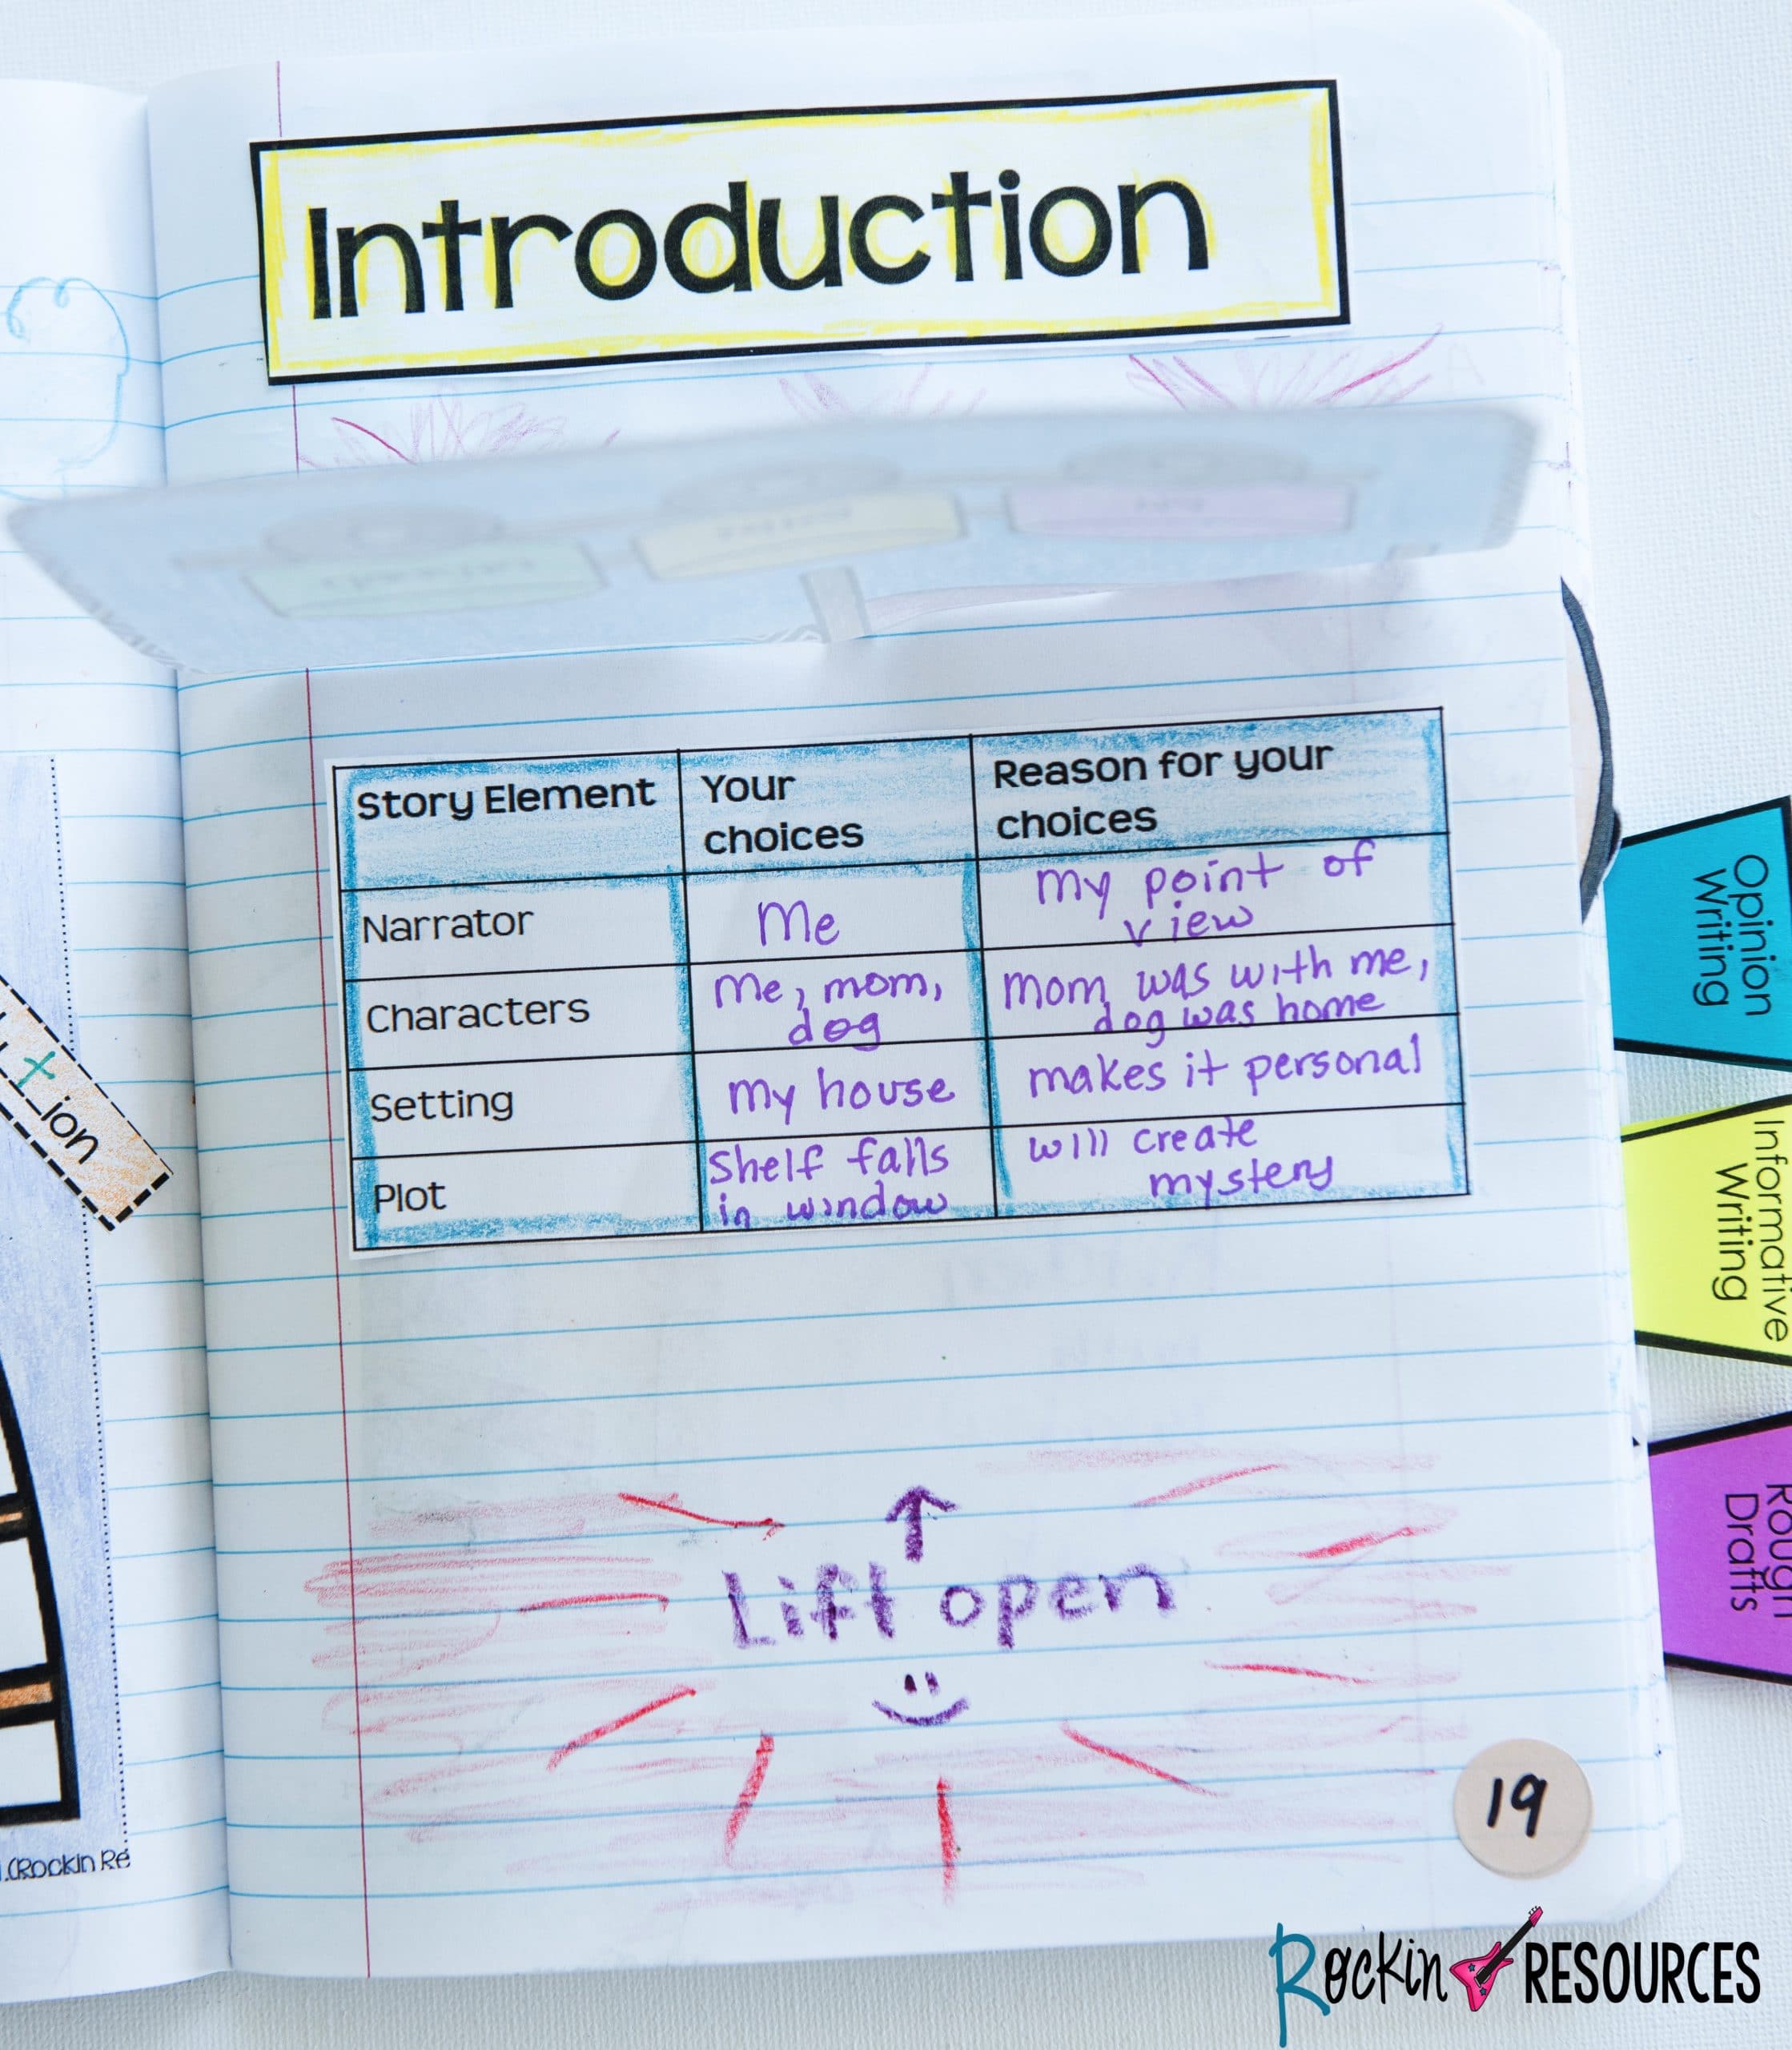 Introduction
Story Element
Your
choices
Reason for your
choices
Narrator
Me
my point of
view
Characters
Me, mom,
dog
mom was with me,
dog was home
Setting
my house
makes it personal
Plot
Shelf falls
in window
will create
mystery
↑
Lift open
19
ion
.(Rockin Re
Opinion
Writing
Informative
Writing
Rough
Drafts
Rockin RESOURCES